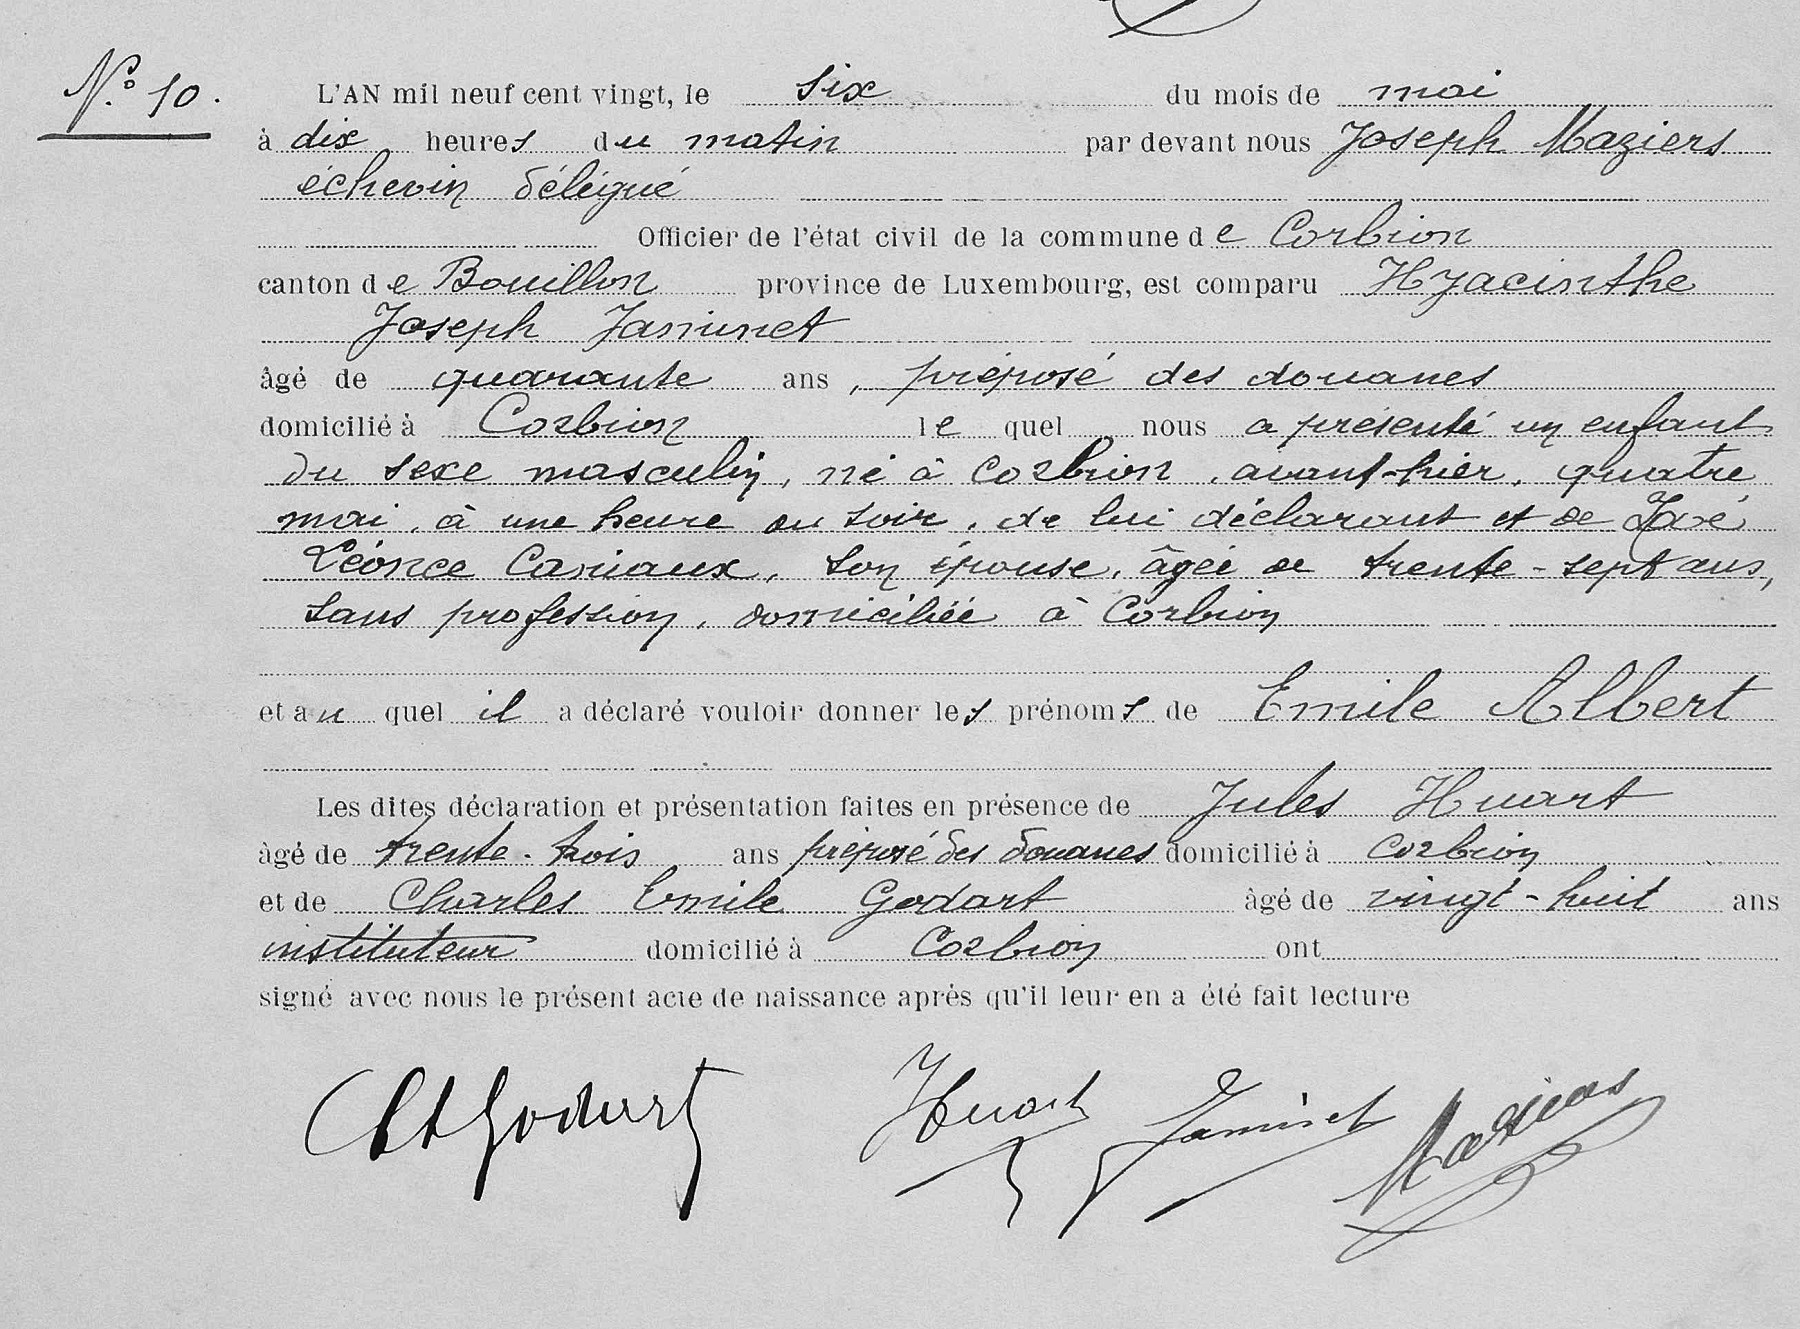 N.° 10.
L'AN mil neuf cent vingt, le six du mois de mai
à dix heures du matin par devant nous Joseph Maziers
échevin délégué
Officier de l'état civil de la commune de Corbion
canton de Bouillon province de Luxembourg, est comparu Hyacinthe
Joseph Jaminet
âgé de quarante ans, préposé des douanes
domicilié à Corbion lequel nous a présenté un enfant
du sexe masculin, né à Corbion, avant-hier, quatre
mai, à une heure du soir, de lui déclarant et de
Léonce Cariaux, son épouse, âgée de trente-sept ans,
sans profession, domiciliée à Corbion
et au quel il a déclaré vouloir donner les prénoms de Emile Albert
Les dites déclaration et présentation faites en présence de Jules Huart
âgé de trente-trois ans préposé des douanes domicilié à Corbion
et de Charles Emile Godart âgé de vingt-huit ans
instituteur domicilié à Corbion ont
signé avec nous le présent acte de naissance après qu'il leur en a été fait lecture
Ch Godart Huart Jaminet Maziers